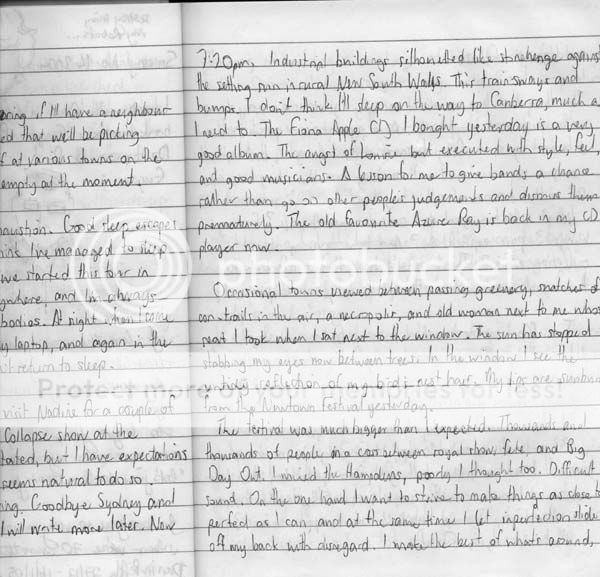 aring if I'll have a neighbour
ed that we'll be picking
f at various towns on the
empty at the moment.
haustion. Good sleep escapes
ink I've managed to sleep
we started this tour in
ywhere, and I'm always
bodies. At night when I come
y laptop, and again in the
return to sleep.
visit Nadine for a couple of
Collapse show at the
tated, but I have expectations
seems natural to do so.
ng. Goodbye Sydney and
I will write more later. Now
7:20pm. Industrial buildings silhouetted like stonehenge against
the setting sun in rural New South Wales. This train sways and
bumps. I don't think I'll sleep on the way to Canberra, much as
I need to. The Fiona Apple CD I bought yesterday is a very
good album. The angst of but executed with style, feel,
and good musicians. A lesson to me to give bands a chance
rather than go on other people's judgements and dismiss them
prematurely. The old favourite Azure Ray is back in my CD
player now.
Occasional towns viewed between passing greenery, snatches of
con-trails in the air, a necropolis, and old woman next to me whose
seat I took when I sat next to the window. The sun has stopped
stabbing my eyes now between trees. In the window I see the
reflection of my nest hair. My lips are sunburnt
from the Newtown festival yesterday.
The festival was much bigger than I expected. Thousands and
thousands of people in a cross between royal show, fete, and Big
Day Out. I mixed the Hamodens, poorly I thought too. Difficult
sound. On the one hand I want to strive to make things as close to
perfect as I can, and at the same time I let inperfection slide
off my back with disregard. I make the best of what's around,
photobucket
Protect more of your memories for less!